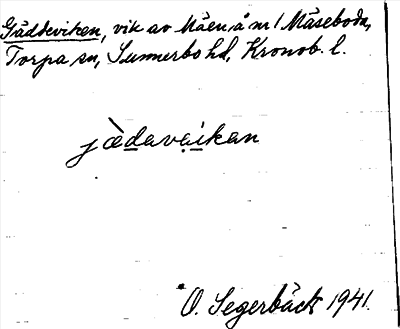 Gäddeviken, vik av Måen, å nr 1 Måseboda,
Torpa sn, Sunnerbo hd, Kronob. l.
jæ̀davæikan
O. Segerbäck 1941.